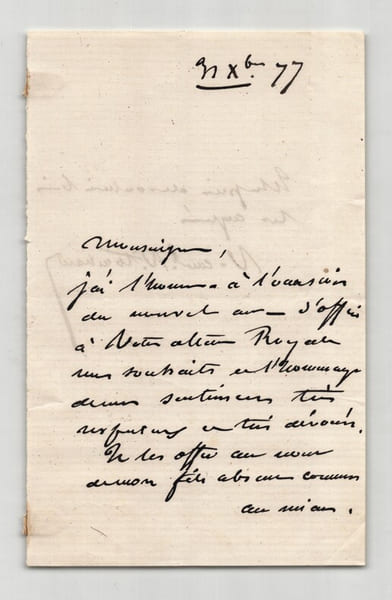 31 Xbre 77
Monseigneur,
j'ai l'honneur à l'occasion
du nouvel an d'offrir
à Votre Altesse Royale
mes souhaits et l'hommage
de mes sentiments très
respectueux et très dévoués.
Je les offre au nom
de mon fils absent comme
au mien.